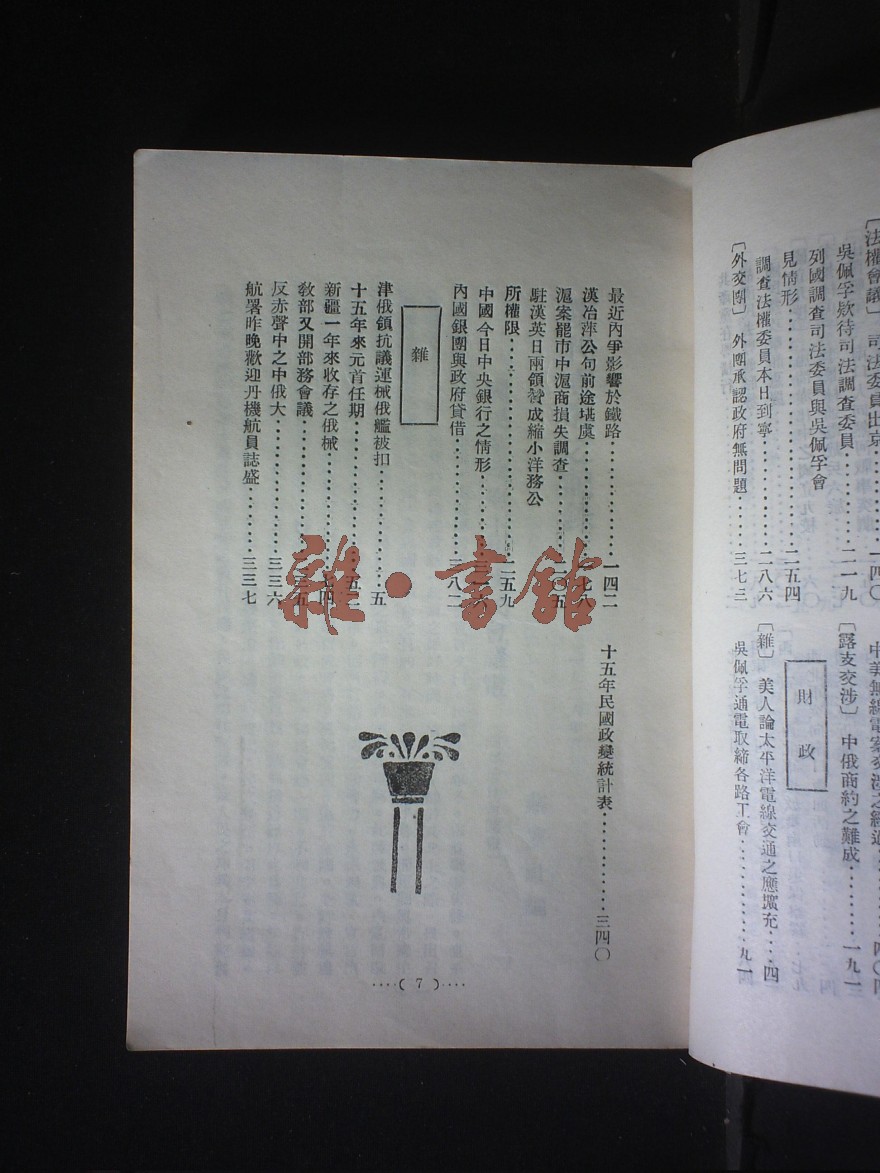 〔法權會議〕　司法委員出京⋯⋯⋯一四〇
吳佩孚欵待司法調查委員⋯⋯二一九
列國調查司法委員與吳佩孚會
見情形⋯⋯⋯⋯⋯⋯二五四
調查法權委員本日到寧⋯⋯⋯⋯二八六
〔外交團〕　外團承認政府無問題⋯⋯⋯三七三
中美無線電案交涉之經過⋯⋯⋯四〇四
〔露支交涉〕　中俄商約之難成⋯⋯⋯一九一
財政
〔雜〕　美人論太平洋電線交通之應擴充⋯⋯四
吳佩孚通電取締各路工會⋯⋯⋯⋯九一
最近內爭影響於鐵路⋯⋯⋯⋯一四二
漢冶萍公司前途堪虞⋯⋯⋯⋯一七八
滬案罷市中滬商損失調查⋯⋯⋯⋯二〇五
駐漢英日兩領贊成縮小洋務公
所權限⋯⋯⋯⋯⋯⋯二五九
中國今日中央銀行之情形⋯⋯⋯⋯
內國銀團與政府貸借⋯⋯⋯⋯三八二
雜
津俄領抗議運械俄艦被扣⋯⋯⋯⋯五
十五年來元首任期⋯⋯⋯⋯五二
新疆一年來收存之俄械⋯⋯⋯⋯七四
敎部又開部務會議⋯⋯⋯⋯
反赤聲中之中俄大⋯⋯⋯⋯三三六
航署昨晚歡迎丹機航員誌盛⋯⋯⋯⋯三三七
十五年民國政變統計表⋯⋯⋯⋯三四〇
⋯⋯( 7 )⋯⋯
雜·書館